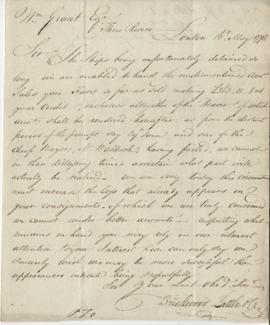 Wm Grant Esqr
Three Rivers London 16 May 179
Sir The Ships being unfortunately detained so
long we are enabled to hand the undermentioned Acct
Sales your Favor as far as sold making
your Credit, exclusive altogether of the of which
acct shall be rendered hereafter, as from the distant
period of the prompt day by some and one of the
Chief Buyers, Mr having failed, we cannot
in these distressing times ascertain what part will
actually be realized. We are sorry to say this circumstance
must increase the loss that already appears on
your consignments, of which we are truly concerned
we cannot render better accounts respecting what
remains on hand you may rely on our utmost
attention to your Interest & can only say we
sincerely wish we may be more successful than
appearances indicate being respectfully
Sir Your most obed Servts
Brickwood Pattle & Co
PTO